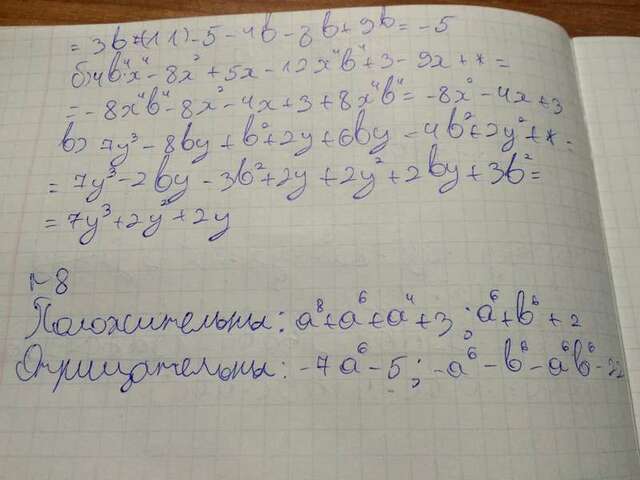 = 3b+(-11)-5-4b-8b+9b=-5
б) 4b⁴x⁴-8x²+5x-12x⁴b⁴+3-9x+*=
=-8x⁴b⁴-8x²-4x+3+8x⁴b⁴=-8x²-4x+3
в) 7y³-8by+b²+2y+6by-4b²+2y²+*=
=7y³-2by-3b²+2y+2y²+2by+3b²=
=7y³+2y²+2y
№8
Положительны: a⁸+a⁶+a⁴+3; a⁶+b⁶+2
Отрицательны: -7a⁶-5; -a⁶-b⁶-a⁶b⁶-